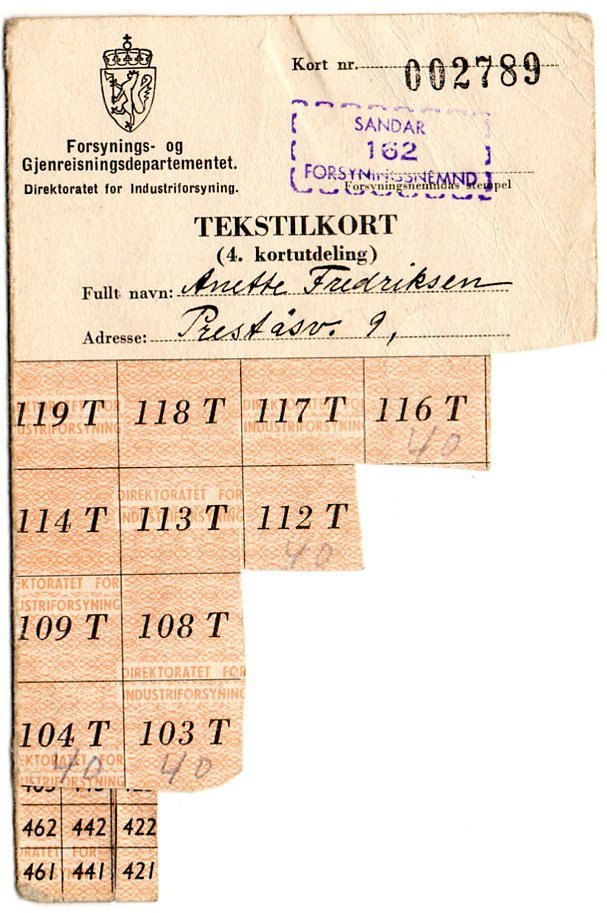 Kort nr. 002789
SANDAR
162
FORSYNINGSSNEMND
Forsyningsnemndas stempel
Forsynings- og
Gjenreisningsdepartementet.
Direktoratet for Industriforsyning.
TEKSTILKORT
(4. kortutdeling)
Fullt navn: Anette Fredriksen
Adresse: Preståsv. 9,
119 T 118 T 117 T 116 T
40
DIREKTORATET FOR
INDUSTRIFORSYNING
114 T 113 T 112 T
40
KTORATET FOR
USTRIFORSYNING
109 T 108 T
DIREKTORATET FOR
INDUSTRIFORSYNING
104 T 103 T
40 40
462 442 422
461 441 421